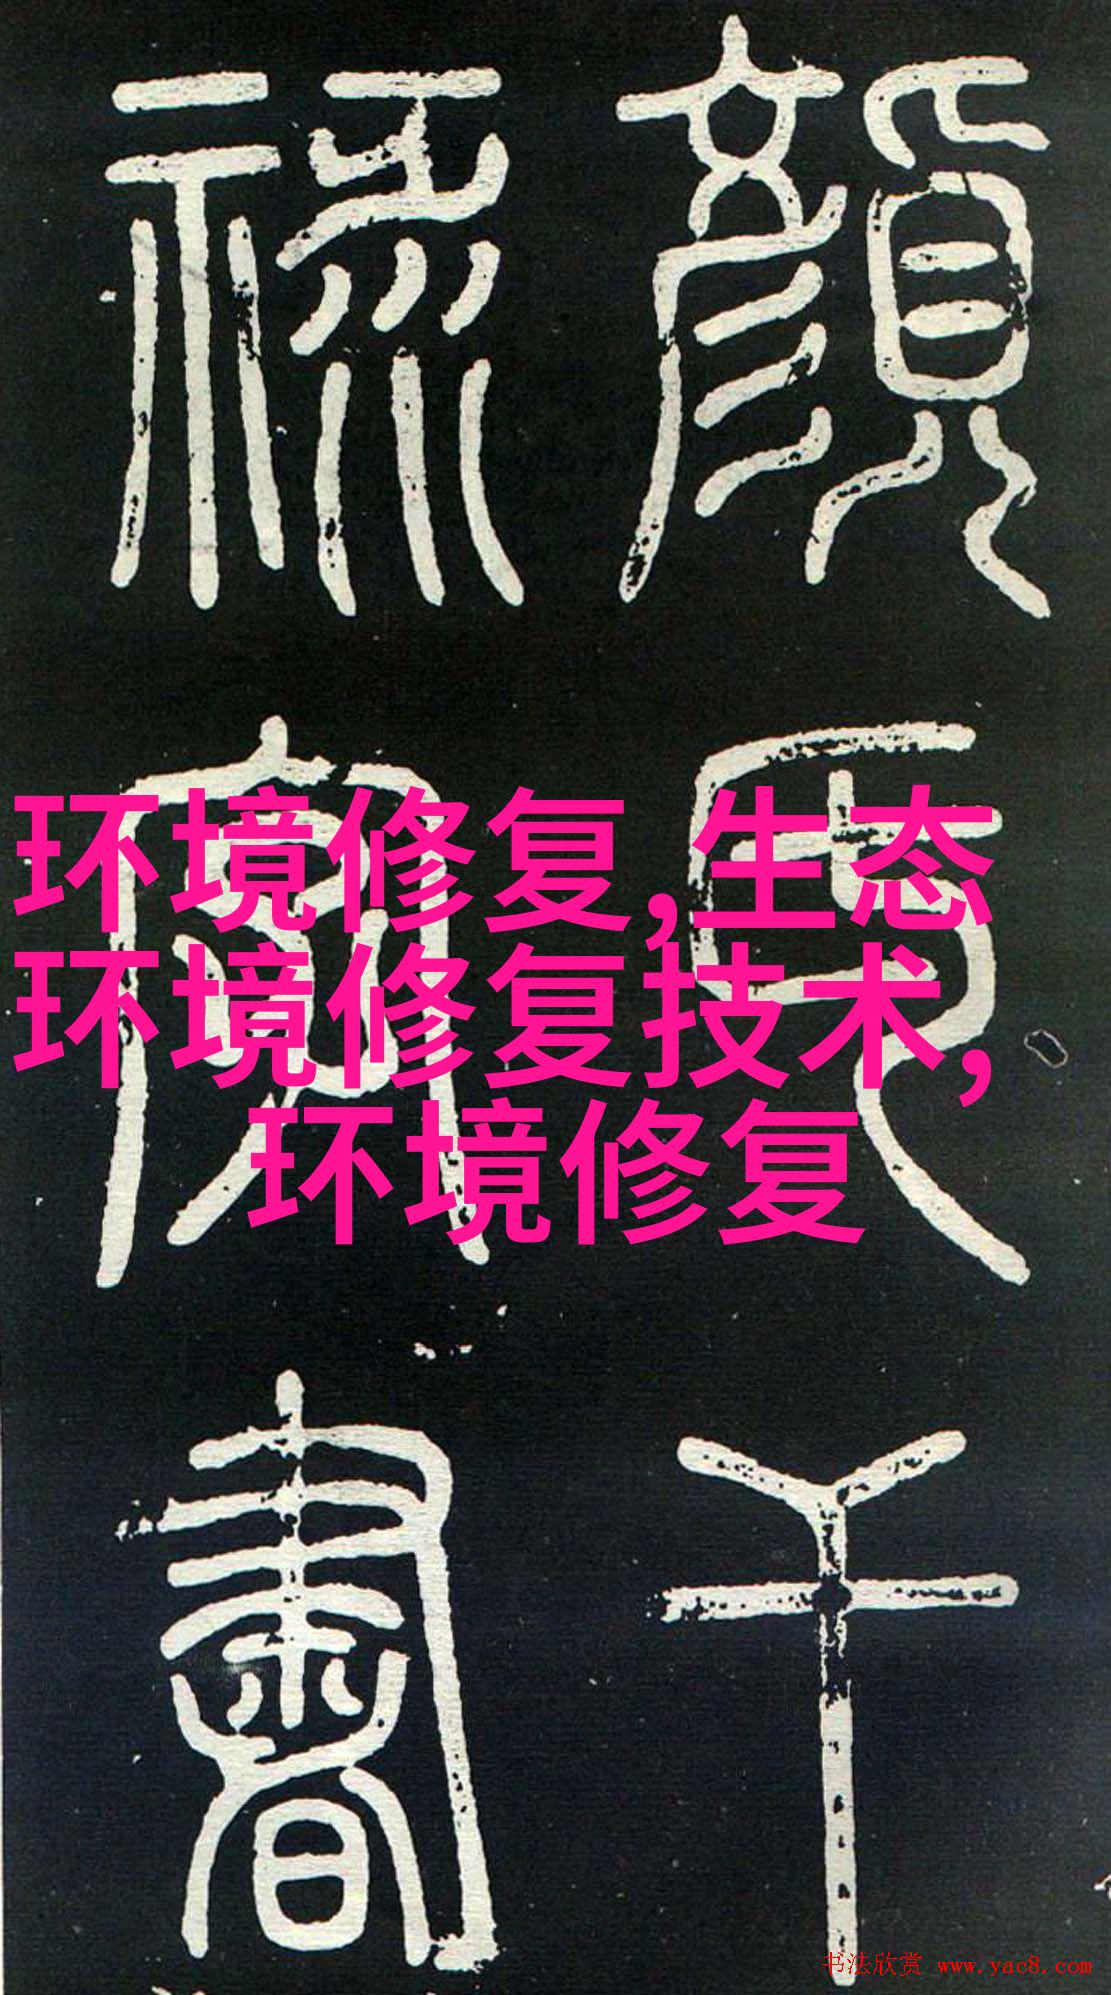 顏氏干
祿字書
环境修复,生态
环境修复技术,
环境修复
书法欣赏 www.yac8.com